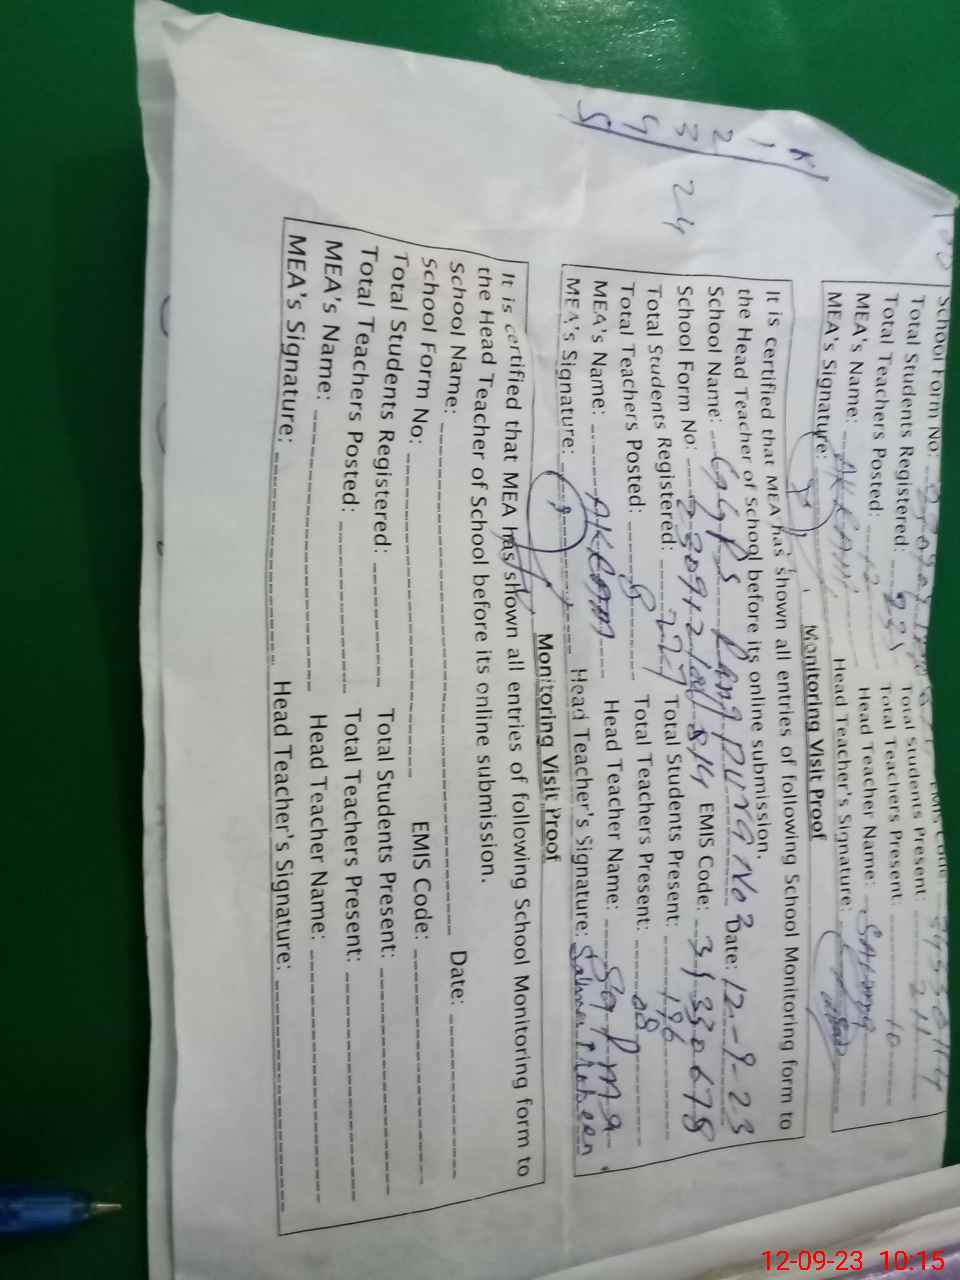 School Form No:
Total Students Registered: 225 Total Students Present: 211
Total Teachers Posted: 12 Total Teachers Present: 10
MEA's Name: AKRAM Head Teacher Name: Saima
MEA's Signature: Head Teacher's Signature:
Monitoring Visit Proof
It is certified that MEA has shown all entries of following School Monitoring form to
the Head Teacher of School before its online submission.
School Name: GGPS Date: 12-9-23
School Form No: EMIS Code:
Total Students Registered: 227 Total Students Present: 196
Total Teachers Posted: Total Teachers Present: 08
MEA's Name: AKRAM Head Teacher Name:
MEA's Signature: Head Teacher's Signature:
Monitoring Visit Proof
It is certified that MEA has shown all entries of following School Monitoring form to
the Head Teacher of School before its online submission.
School Name: Date:
School Form No: EMIS Code:
Total Students Registered: Total Students Present:
Total Teachers Posted: Total Teachers Present:
MEA's Name: Head Teacher Name:
MEA's Signature: Head Teacher's Signature:
K
1
2
3
4
5
24
12-09-23 10:15